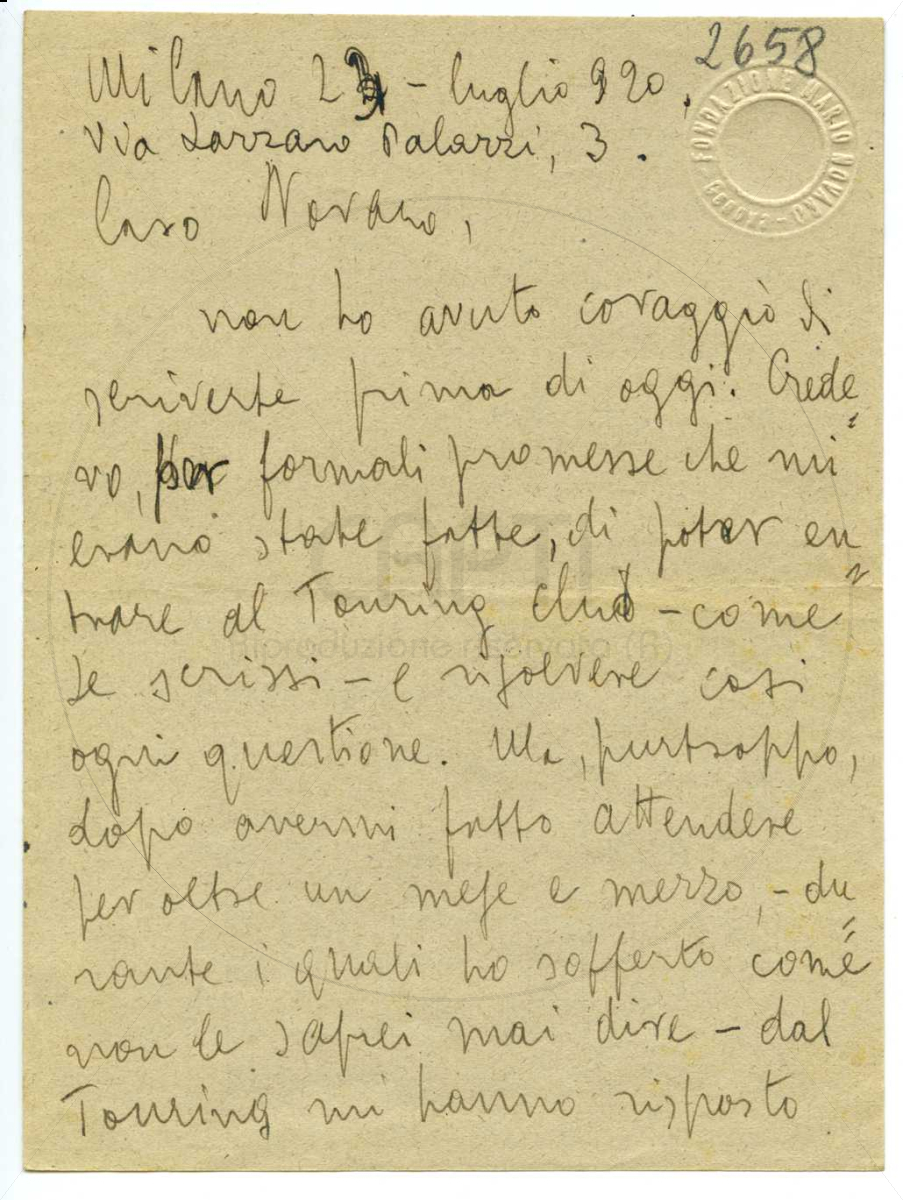 2658
FONDAZIONE MARIO NOVARO - GENOVA -
Milano 23 - luglio 920.
Via Lazzaro Palazzi, 3.
Caro Novaro,
non ho avuto coraggio di
scriverle prima di oggi. Crede=
vo, per formali promesse che mi
erano state fatte, di poter en=
trare al Touring Club - come
le scrissi - e risolvere così
ogni questione. Ma, purtroppo,
dopo avermi fatto attendere
per oltre un mese e mezzo, - du=
rante i quali ho sofferto come
non le saprei mai dire - dal
Touring mi hanno risposto
riproduzione riservata (R)